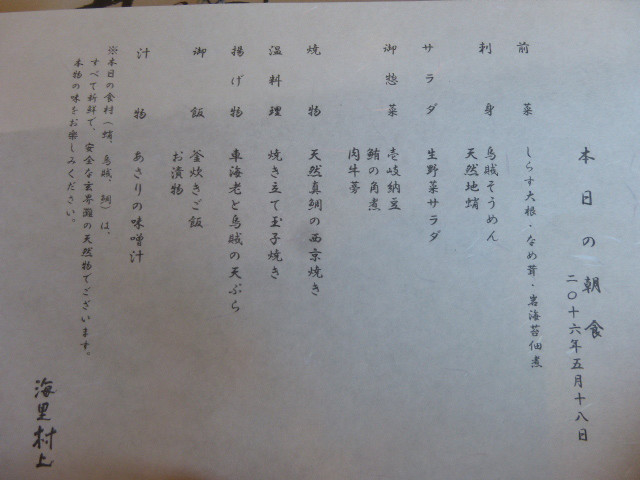 本日の朝食
二〇十六年五月十八日
前菜 しらす大根・なめ茸・岩海苔佃煮
刺身 烏賊そうめん
天然地蛸
サラダ 生野菜サラダ
御惣菜 壱岐納豆
鮪の角煮
肉牛蒡
焼物 天然真鯛の西京焼き
温料理 焼き立て玉子焼き
揚げ物 車海老と烏賊の天ぷら
御飯 釜炊きご飯
お漬物
汁物 あさりの味噌汁
※本日の食材(蛸、烏賊、鯛)は、
すべて新鮮で、安全な玄界灘の天然物でございます。
本物の味をお楽しみください。
海里村上